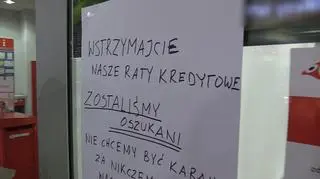 WSTRZYMAJCIE
NASZE RATY KREDYTOWE
ZOSTALIŚMY
OSZUKANI
NIE CHCEMY BYĆ
ZA